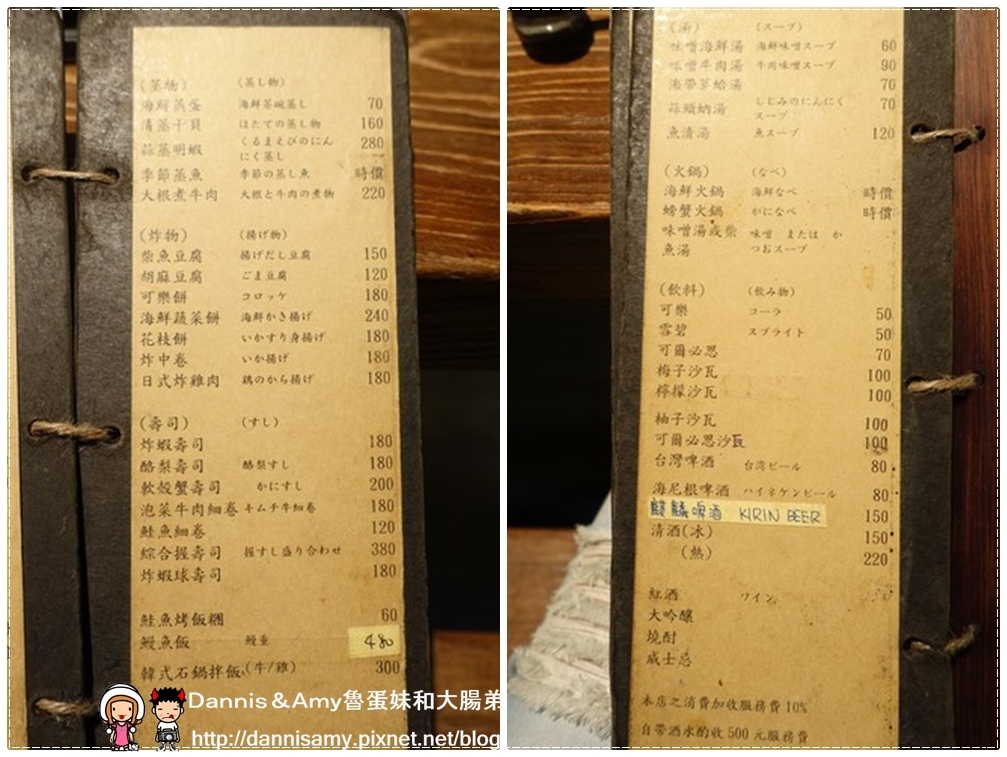 (蒸物) (蒸し物)
海鮮蒸蛋 海鮮茶碗蒸し 70
清蒸干貝 ほたての蒸し物 160
蒜蒸明蝦 くるまえびのにん
にく蒸し 280
季節蒸魚 季節の蒸し魚 時價
大根煮牛肉 大根と牛肉の煮物 220
(炸物) (揚げ物)
柴魚豆腐 揚げだし豆腐 150
胡麻豆腐 ごま豆腐 120
可樂餅 コロッケ 180
海鮮蔬菜餅 海鮮かき揚げ 240
花枝餅 いかすり身揚げ 180
炸中卷 いか揚げ 180
日式炸雞肉 鶏のから揚げ 180
(壽司) (すし)
炸蝦壽司 180
酪梨壽司 酪梨すし 180
軟殼蟹壽司 かにすし 200
泡菜牛肉細卷 キムチ牛細卷 180
鮭魚細卷 120
綜合握壽司 握すし盛り合わせ 380
炸蝦球壽司 180
鮭魚烤飯糰 60
鰻魚飯 鰻重 480
韓式石鍋拌飯(牛/雞) 300
Dannis＆Amy魯蛋妹和大腸弟
http://dannisamy.pixnet.net/blog
(湯) (スープ)
味噌海鮮湯 海鮮味噌スープ 60
味噌牛肉湯 牛肉味噌スープ 90
海帶芽蛤湯 70
蒜頭蜆湯 しじみのにんにく
スープ 70
魚清湯 魚スープ 120
(火鍋) (なべ)
海鮮火鍋 海鮮なべ 時價
螃蟹火鍋 がになべ 時價
味噌湯或柴 味噌 または か
魚湯 つおスープ
(飲料) (飲み物)
可樂 コーラ 50
雪碧 スプライト 50
可爾必思 70
梅子沙瓦 100
檸檬沙瓦 100
柚子沙瓦 100
可爾必思沙瓦 100
台灣啤酒 台湾ビール 80
海尼根啤酒 ハイネケンビール 80
麒麟啤酒 KIRIN BEER 150
清酒(冰) 150
(熱) 220
紅酒 ワイン
大吟釀
燒酎
威士忌
本店之消費加收服務費10%
自帶酒水酌收500元服務費